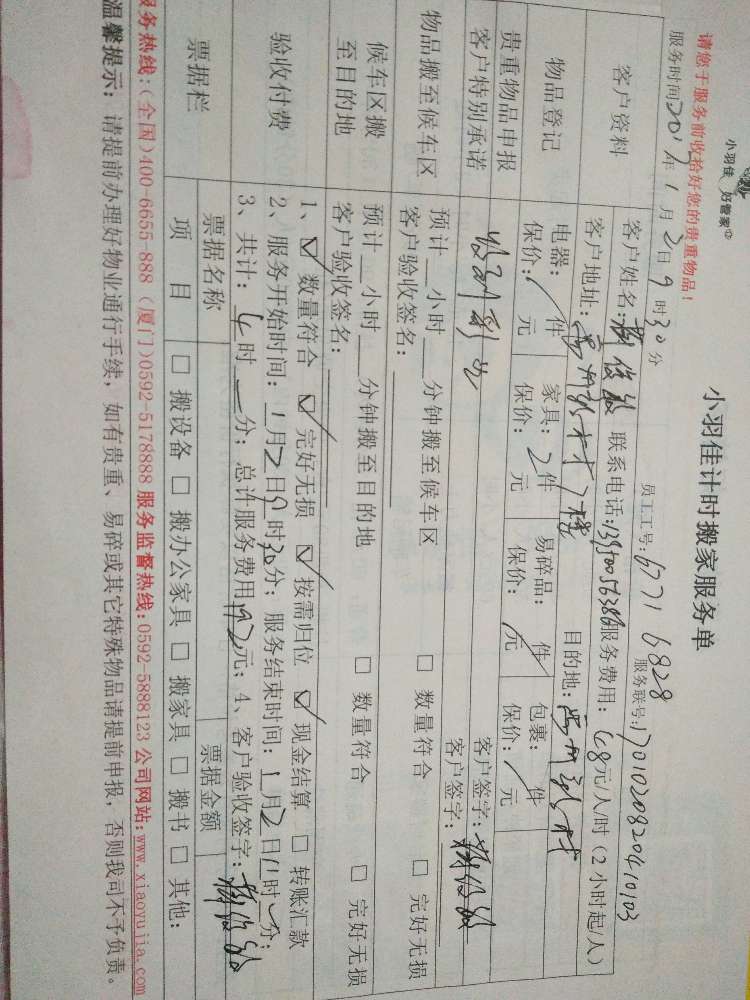 小羽佳 好管家
小羽佳计时搬家服务单
请您于服务前收拾好您的贵重物品!
员工工号: 6771 6828 服务联号: 1701020820410103
服务时间2017年1月2日9时30分
客户资料
客户姓名: 联系电话: 服务费用: 68元/人/时(2小时起/人)
客户地址: 目的地:
物品登记
电器: / 件 家具: 2件 易碎品: / 件 包裹: / 件
保价: 元 保价: 元 保价: 元 保价: 元
贵重物品申报
客户特别承诺
客户签字:
客户签字:
物品搬至候车区
预计 小时 分钟搬至候车区 □ 数量符合 □ 完好无损
客户验收签名:
候车区搬至目的地
预计 小时 分钟搬至目的地 □ 数量符合 □ 完好无损
客户验收签名:
验收付费
1、☑ 数量符合 ☑ 完好无损 ☑ 按需归位 ☑ 现金结算 □ 转账汇款
2、服务开始时间: 1月2日9时30分; 服务结束时间: 1月2日11时 分;
3、共计: 时 分; 总计服务费用 元; 4、客户验收签字:
票据栏
票据名称 票据金额
项 目 □ 搬设备 □ 搬办公家具 □ 搬家具 □ 搬书 □ 其他:
服务热线:(全国)400-6655-888 (厦门)0592-5178888 服务监督热线:0592-5888123 公司网站:www.xiaoyujia.com
温馨提示: 请提前办理好物业通行手续, 如有贵重、易碎或其它特殊物品请提前申报, 否则我司不予负责。